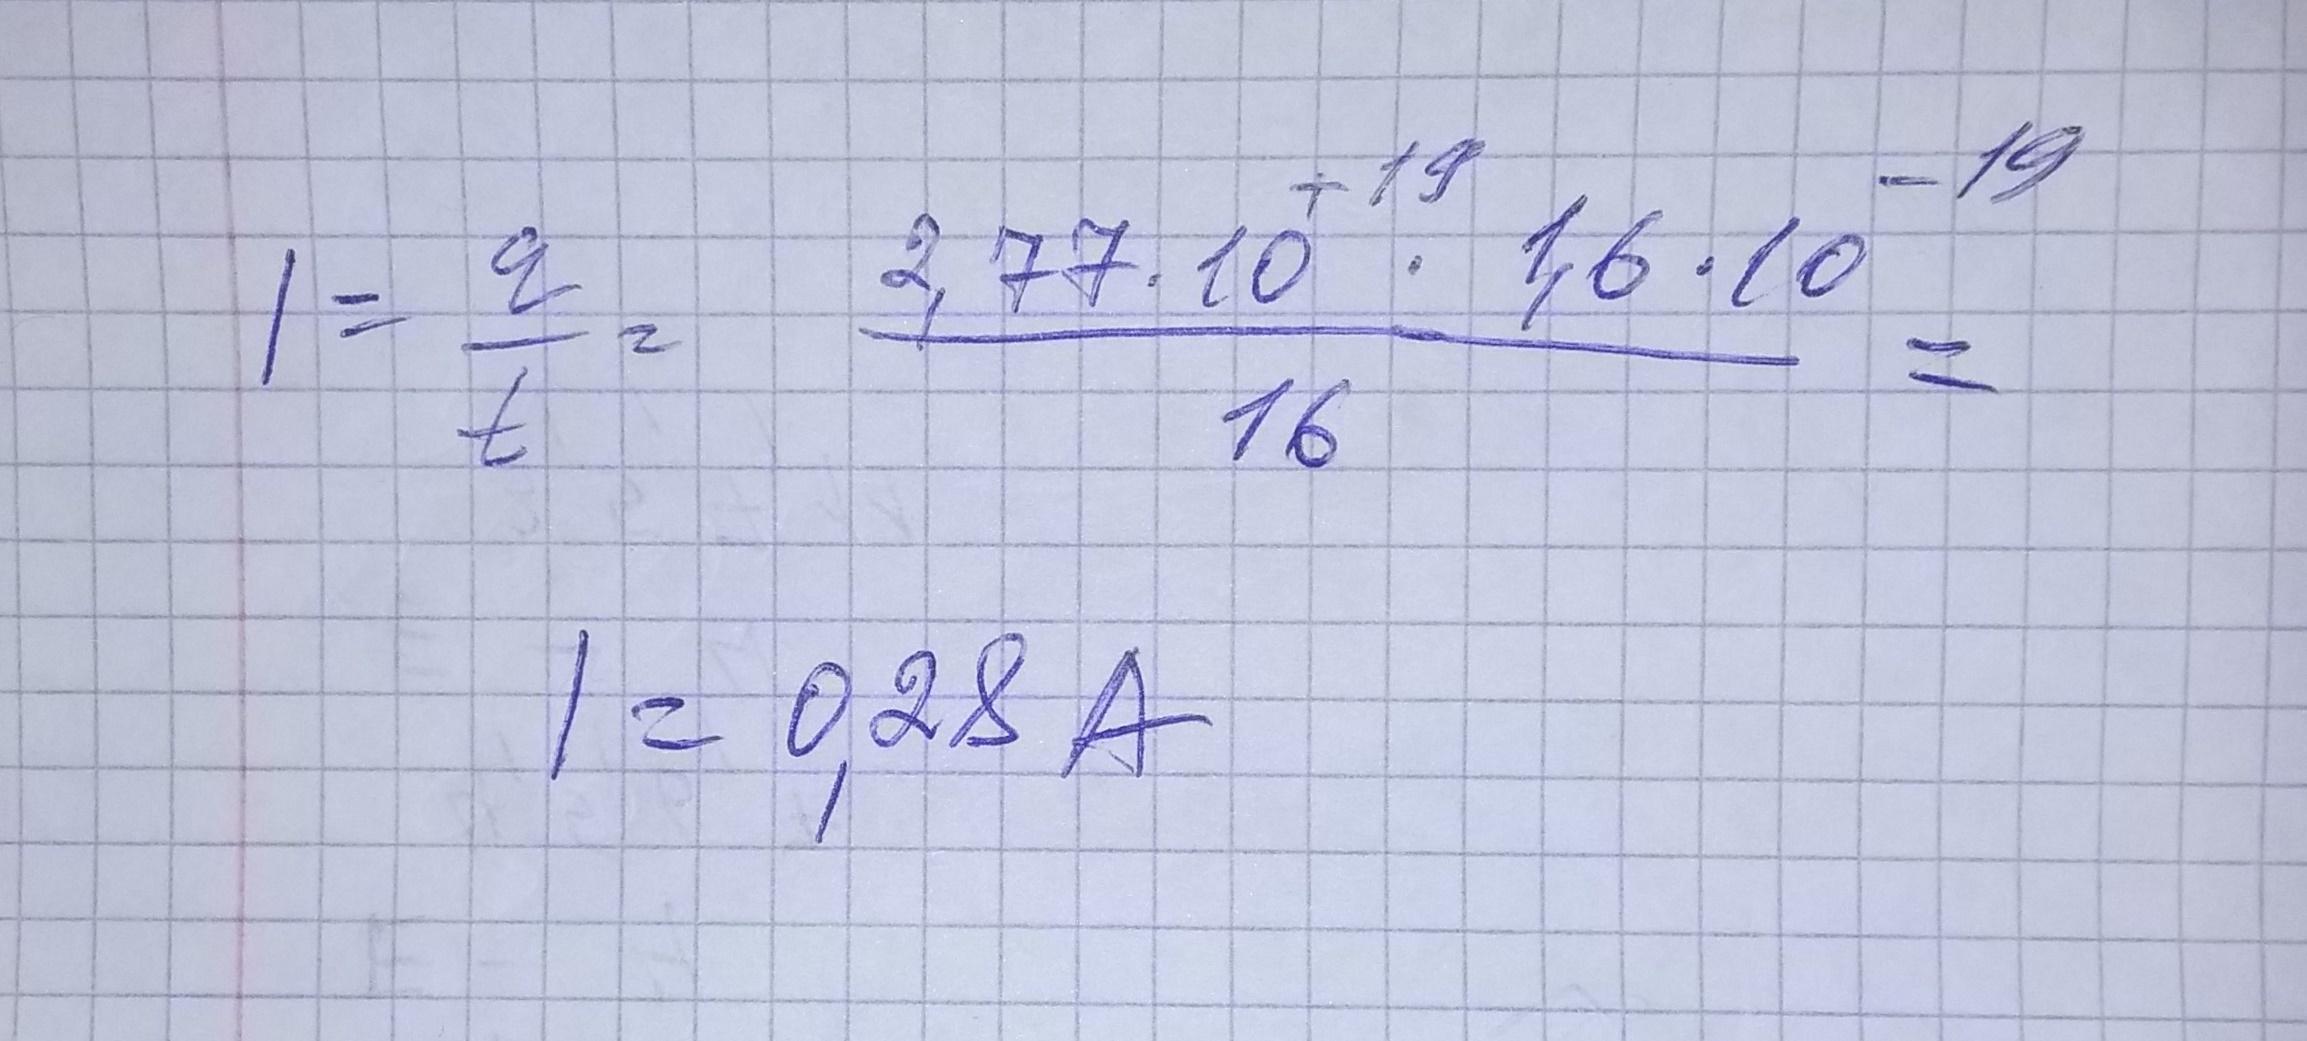 I = q/t = 2,77·10⁺¹⁹ · 1,6·10⁻¹⁹ / 16 =
I = 0,28 A